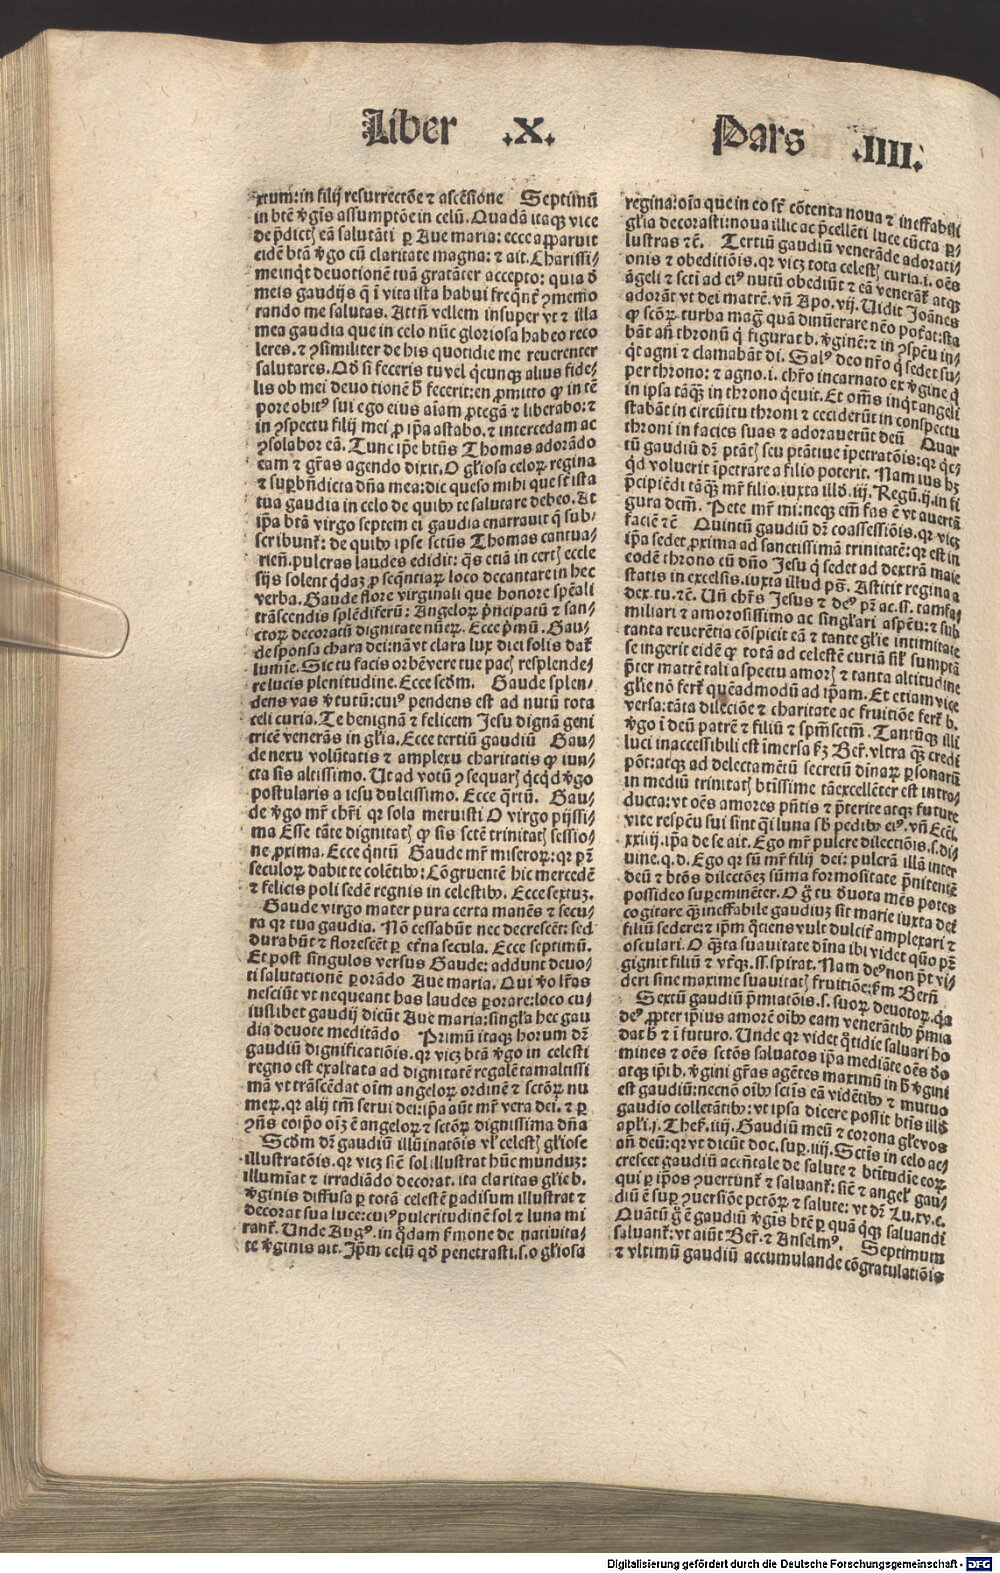 Liber .X. Pars .IIII.
xtum: in filij resurrectõe ⁊ ascẽsione Septimũ
in btẽ v̾gĩs assumptõe in celũ. Quadã itaqꝫ vice
de p̃dictꝭ eã salutãti ꝑ Aue maria: ecce apparuit
eidẽ btã v̾go cũ claritate magna: ⁊ ait. Charissi⸗
me inqͥt deuotionẽ tuã gratãter accepto: quia ð
meis gaudijs q̃ ĩ vita ista habui freq̃nt̾ ꝯmemo
rando me salutas. Attñ vellem insuper vt ⁊ illa
mea gaudia que in celo nũc gloriosa habeo reco
leres. ⁊ ꝯsimiliter de his quotidie me reuerenter
salutares. Qð si feceris tu vel qͥcunqꝫ alius fide⸗
lis ob mei deuo tionẽ h̾ fecerit: en ꝓmitto ꝙ in tẽ
pore obitꝰ sui ego eius aĩam ꝓtegã ⁊ liberabo: ⁊
in ꝯspectu filij mei ꝓ ip̃a astabo. ⁊ intercedam ac
ꝯsolabor eã. Tunc ip̃e btũs Thomas adorãdo
eam ⁊ gr̃as agendo dixit. O gl̾iosa celoꝝ regina
⁊ suꝑbñdicta dña mea: dic queso mihi que st̃ ista
tua gaudia in celo de quibꝰ te salutare debeo. At
ip̃a btã virgo septem ei gaudia enarrauit q̃ sub⸗
scribunt̾: de quibꝰ ipse sctũs Thomas cantua⸗
rieñ. pulcras laudes edidit: q̃s etiã in certꝭ eccle
sijs solent qͥdaʒ ꝓ seq̃ntiaꝝ loco decantare in hec
verba. Gaude flore virginali que honore sp̃eali
trãscendis splẽdiferũ: Angeloꝝ p̾ncipatũ ⁊ san⸗
ctoꝝ decoratũ dignitate nũeꝝ. Ecce p̾mũ. Gau⸗
de sponsa chara dei: nã vt clara lux diei solis dat̾
lumĩe. Sic tu facis orbẽ vere tue pacꝭ resplende⸗
re lucis plenitudine. Ecce scðm. Gaude splen⸗
dens vas v̾tutũ: cuiꝰ pendens est ad nutũ tota
celi curia. Te benignã ⁊ felicem Jesu dignã geni
tricẽ venerãs in gl̾ia. Ecce tertiũ gaudiũ Gau⸗
de nexu volũtatis ⁊ amplexu charitatis ꝙ iun⸗
cta sis altissimo. Ut ad votũ ꝯsequarꝭ qͥcqͥd v̾go
postularis a iesu dulcissimo. Ecce q̃rtũ. Gau⸗
de v̾go mr̃ chr̃i qꝛ sola meruisti O virgo pijssi⸗
ma Esse tãte dignitatꝭ ꝙ sis sctẽ trinitatꝭ sessio⸗
ne ꝓxima. Ecce qͥntũ Gaude mr̃ miseroꝝ: qꝛ pr̃
seculoꝝ dabit te colẽtibꝰ: Cõgruentẽ hic mercedẽ
⁊ felicis poli sedẽ regnis in celestibꝰ. Ecce sextuʒ.
Gaude virgo mater pura certa manẽs ⁊ secu⸗
ra qꝛ tua gaudia. Nõ cessabũt nec decrescẽt: sed
durabũt ⁊ florescẽt ꝑ et̾na secula. Ecce septimũ.
Et post singulos versus Gaude: addunt deuo⸗
ti salutationẽ ꝑorãdo Aue maria. Qui v̾o lr̃as
nesciũt vt nequeant has laudes ꝑorare: loco cu⸗
iuslibet gaudij dicũt Aue maria: singl̾a hec gau
dia deuote meditãdo Primũ itaqꝫ horum dr̃
gaudiũ dignificatiõis. qꝛ vicʒ btã v̾go in celesti
regno est exaltata ad dignitatẽ regalẽ tam altissi
mã vt trãscẽdat oĩm angeloꝝ ordinẽ ⁊ sctõꝝ nu
meꝝ. qꝛ alij tm̃ serui dei: ip̃a aũt mr̃ vera dei. ⁊ ꝑ
ꝯñs eoip̃o oĩʒ ẽ angeloꝝ ⁊ sctõꝝ dignissima dña
Scðm dr̃ gaudiũ illũinatõis vl̾ celestꝭ gl̾iose
illustratõis. qꝛ vicʒ siẽ sol illustrat hũc munduʒ:
illumĩat ⁊ irradiãdo decorat. ita claritas gl̾ie b.
v̾ginis diffusa ꝑ totã celestẽ ꝑadisum illustrat ⁊
decorat sua luce: cuiꝰ pulcritudinẽ sol ⁊ luna mi
rant̾. Unde Augꝰ. in qͦdam s̾mone de natiuita⸗
te v̾ginis ait. Ip̃m celũ qð penetrasti. s. o gl̾iosa
regina: oĩa que in eo st̃ cõtenta noua ⁊ ineffabili
gl̾ia decorasti: noua illic ac p̾cellẽti luce cũcta ꝑ⸗
lustras ⁊ẽ. Tertiũ gaudiũ venerãde adorati⸗
onis ⁊ obeditiõis. qꝛ vicʒ tota celestꝭ curia. i. oẽs
ãgeli ⁊ scti ad eiꝰ nutũ obediũt ⁊ eã venerãt̾ atqꝫ
adorãt vt dei matrẽ. vñ Apo. vij. Uidit Joãnes
ꝙ scõꝝ turba mag̃ quã dinũerare nẽo pot̾at: sta
bãt añ thronũ q̾ figurat b. v̾ginẽ: ⁊ in ꝯspẽu in⸗
qͥt agni ⁊ clamabãt di. Salꝰ deo nr̃o qͥ sedet su⸗
per throno: ⁊ agno. i. chr̃o incarnato ex v̾gine qͥ
in ipsa tãqꝫ in throno qͥeuit. Et om̃s inqͥt angeli
stabãt in circũitu throni ⁊ ceciderũt in conspectu
throni in facies suas ⁊ adorauerũt deũ Quar
tũ gaudiũ dr̃ ptãtꝭ seu ptãtiue ĩpetratõis: qꝛ qͥc⸗
qͥd voluerit ĩpetrare a filio poterit. Nam ius hʒ
p̾cipiẽdi tãqꝫ mr̃ filio. iuxta illð. iij. Regũ. ij. in fi
gura dcm̃. Pete mr̃ mi: neqꝫ em̃ fas ẽ vt auertã
faciẽ ⁊ẽ Quintũ gaudiũ dr̃ coassessiõis. qꝛ vicʒ
ip̃a sedet ꝓxima ad sanctissimã trinitatẽ: qꝛ est in
eodẽ throno cũ dño Jesu qͥ sedet ad dextrã maie
statis in excelsis. iuxta illud ps̃. Astitit regina a
dex. tu. ⁊ẽ. Uñ chr̃s Jesus ⁊ deꝰ pr̃ ac. ss. tam fa⸗
miliari ⁊ amorosissimo ac singl̾ari aspẽu: ⁊ sub
tanta reuerẽtia cõspicit eã ⁊ tante gl̾ie intimitate
se ingerit eidẽ ꝙ totã ad celestẽ curiã sil̾ sumptã
p̾ter matrẽ tali aspectu amorꝭ ⁊ tanta altitudine
gl̾ie nõ fert̾ quẽadmodũ ad ip̃am. Et etiam vice
versa: tãta dilectiõe ⁊ charitate ac fruitiõe fert̾ b.
v̾go ĩ deũ patrẽ ⁊ filiũ ⁊ spm̃sctm̃. Tantũqꝫ illi
luci inaccessibili est ĩmersa s̾ʒ Ber̾. vltra qꝫ̃ credi
põt: atqꝫ ad delectamẽtũ secretũ diuinaꝝ ꝑsonarũ
in mediũ trinitatꝭ btissime tã excellẽter est intro⸗
ducta: vt oẽs amores p̾ñtis ⁊ p̾terite atqꝫ future
vite respẽu sui sint q̃i luna sb̾ pedibꝰ eiꝰ. vñ Ecci.
xxiiij. ip̃a de se ait. Ego mr̃ pulcre dilectiõis. s. di⸗
uine. q. d. Ego qꝛ sũ mr̃ filij dei: pulcrã illã inter
deũ ⁊ btõs dilectõeʒ sũma formositate p̾nitentẽ
possideo suꝑeminẽter. O g̾ tu ðuota mẽs potes
cogitare qꝫ̃ ineffabile gaudiuʒ sit marie iuxta dei
filiũ sedere: ⁊ ip̃m qͦtiens vult dulcit̾ amplexari ⁊
osculari. O qͣ̃ta suauitate dñna ibi videt quõ pr̃
gignit filiũ ⁊ vtr̾qꝫ. ss. spirat. Nam deꝰ non p̃t vi⸗
deri sine maxime suauitatꝭ fruitiõe: s̾m Bern̾
Sextũ gaudiũ p̾miatõis. s. suoꝝ deuotoꝝ. qͣa
deꝰ ꝓpter ip̾ius amorẽ oĩbꝰ eam venerãtibꝰ p̾mia
dat h̾ ⁊ ĩ futuro. Unde qꝛ videt qͦtidie saluari ho
mines ⁊ oẽs sctõs saluatos ip̃a mediãte oẽs ðo
atqꝫ ip̾i b. v̾gini gr̃as agẽtes maximũ in h̾ v̾gini
est gaudiũ: necnõ oĩbꝰ sctĩs eã vidẽtibꝰ ⁊ mutuo
gaudio colletãtibꝰ: vt ipsa dicere possit btĩs illð
apl̾i. j. Thes̾. iiij. Gaudiũ meũ ⁊ corona gl̾e vos
añ deũ: qꝛ vt dicũt doc. suꝑ. iiij. Sctĩs in celo ac⸗
crescet gaudiũ accñtale de salute ⁊ btĩtudie eoꝝ
qui ꝑ ip̾os ꝯuertunt̾ ⁊ saluant̾: siẽ ⁊ angel̾ gau⸗
diũ ẽ suꝑ ꝯuersiõe pctõꝝ ⁊ salute: vt dr̃ Lu. xv. c.
Quãtũ g̾ ẽ gaudiũ v̾gĩs btẽ ꝑ quã qͥqꝫ saluandi
saluant̾: vt aiũt Ber̾. ⁊ Anselmꝰ. Septimum
⁊ vltimũ gaudiũ accumulande cõgratulatiõis
Digitalisierung gefördert durch die Deutsche Forschungsgemeinschaft - DFG